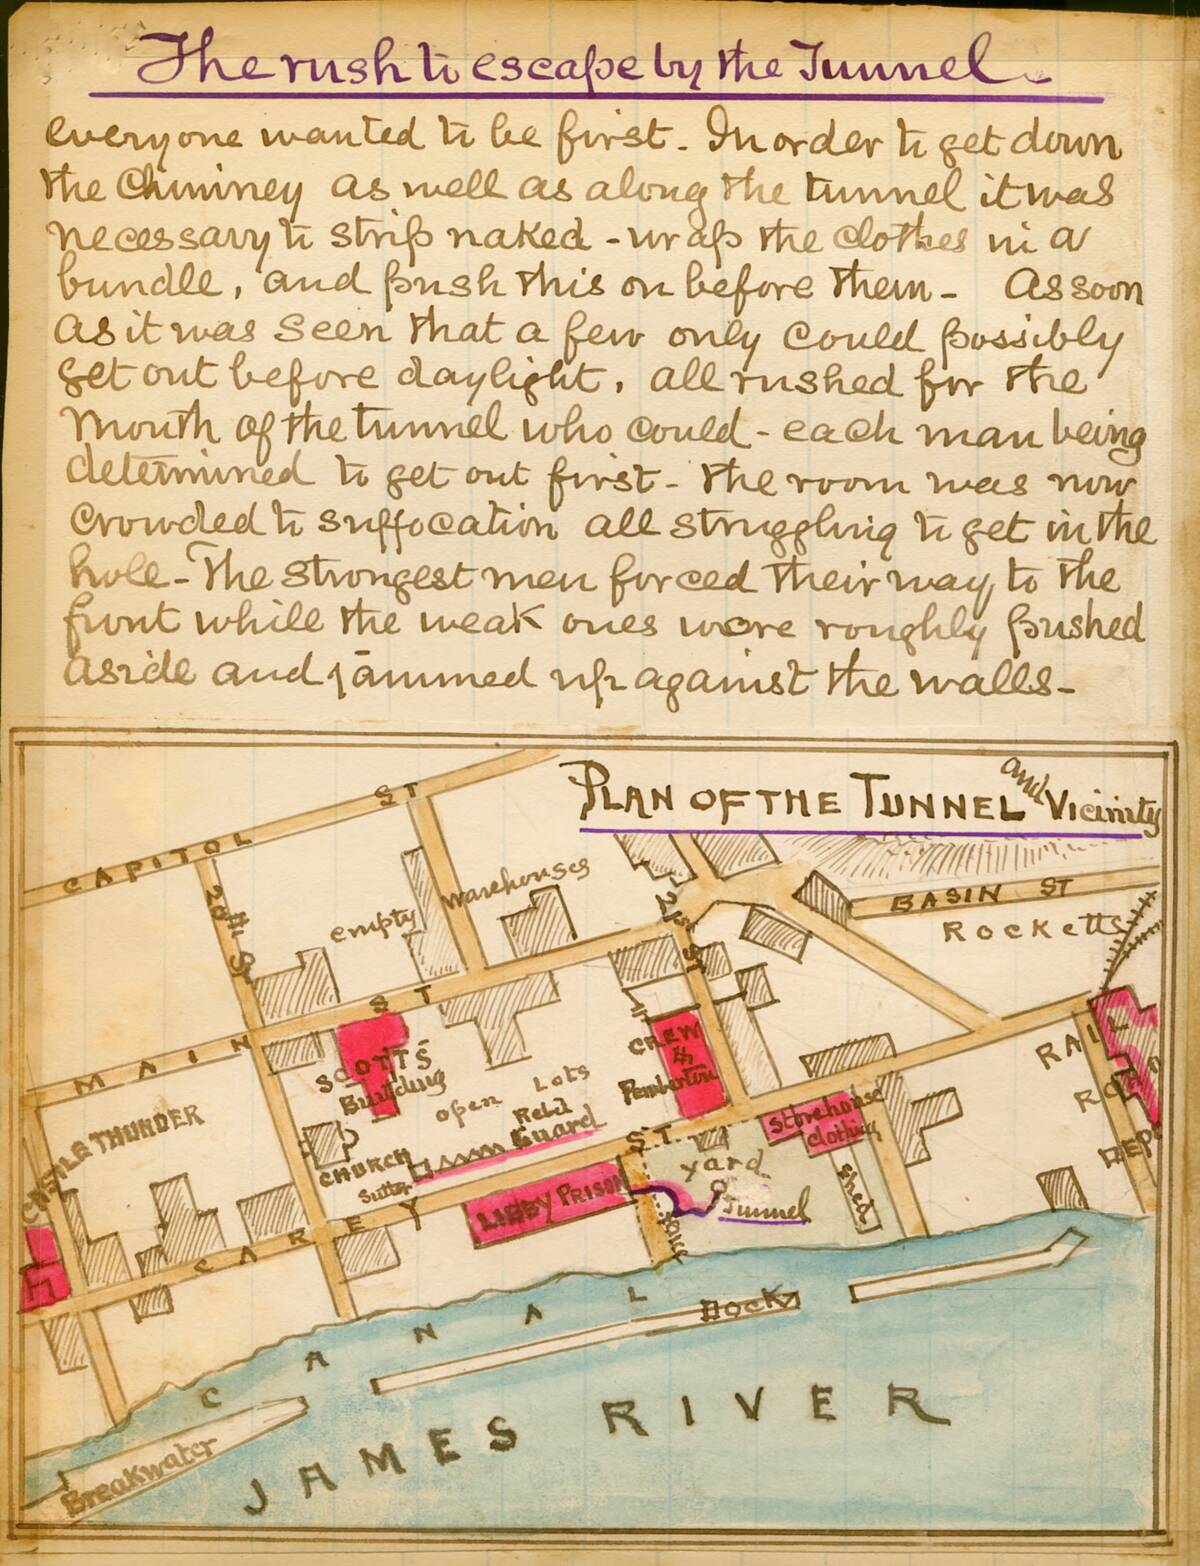 The rush to escape by the Tunnel.
everyone wanted to be first. In order to get down
the Chimney as well as along the tunnel it was
necessary to strip naked - wrap the clothes in a
bundle, and push this on before them - As soon
as it was seen that a few only could possibly
get out before daylight, all rushed for the
mouth of the tunnel who could - each man being
determined to get out first - the room was now
crowded to suffocation all struggling to get in the
hole - The strongest men forced their way to the
front while the weak ones were roughly pushed
aside and jammed up against the walls -
PLAN OF THE TUNNEL and Vicinity
CAPITOL ST
20th St
empty warehouses
21st ST
BASIN ST
Rocketts
MAIN ST
SCOTTS
Building
CREW
&
Pemberton
RAIL
ROAD
DEP
open Lots
Rebel
Guard
CASTLE THUNDER
CHURCH
Sutter
Storehouse
clothing
yard
shed
LIBBY PRISON
Tunnel
fence
CAREY ST
CANAL
Dock
JAMES RIVER
Breakwater